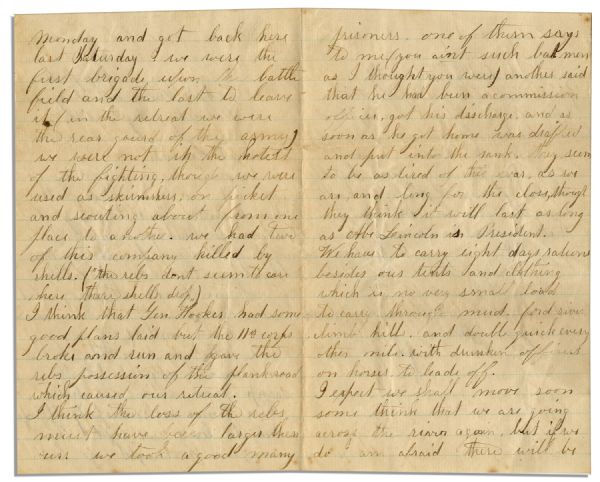 Monday and got back here
last Saturday we were the
first brigade upon the battle
field and the last to leave
it/ in the retreat we were
the rear gaurd of the army/
we were not in the hotest
of the fighting, though we were
used as skirmers, or picket
and scouting about from one
place to another. we had two
of this company killed by
shells. (the rebs dont seem to care
here there shells drop.)
I think that Gen Hooker had some
good plans laid but the 11th corps
broke and run and gave the
rebs possession of the plank road
which caused our retreat.
I think the loss of the rebs,
must have been larger then
ours we took a good many
prisoners. one of them says
to me/you aint such bad men
as I thought you were/ another said
that he had been a commission
officer, got his discharge, and as
soon as he got home was drafted
and put into the rank. they seem
to be as tired of this war, as we
are, and long for the close, though
they think it will last as long
as Abe Lincoln is President.
We have to carry eight days rations
besides our tents and clothing
which is no very small load
to carry through mud. ford river
climb hill. and double quick every
other mile. with drunken officers
on horses to leade off.
I expect we shall move soon
some think that we are going
across the river again, but if we
do I am afraid there will be